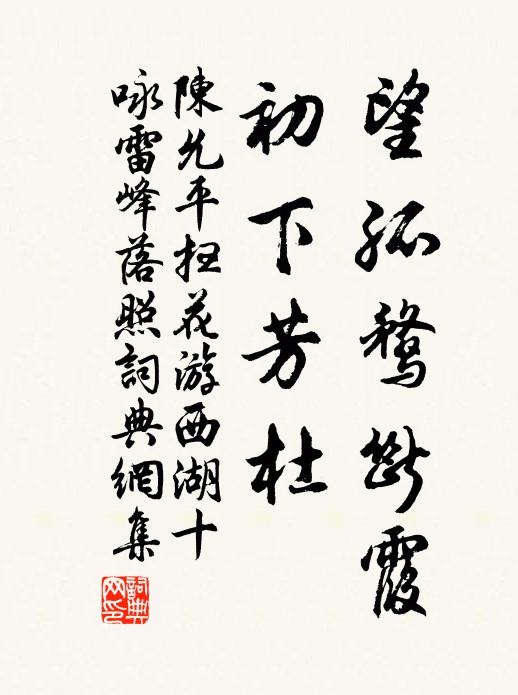 望孤鶩斷霞
初下芳杜
陳允平掃花游西湖十
咏雷峰落照詞典網集
詞典網印